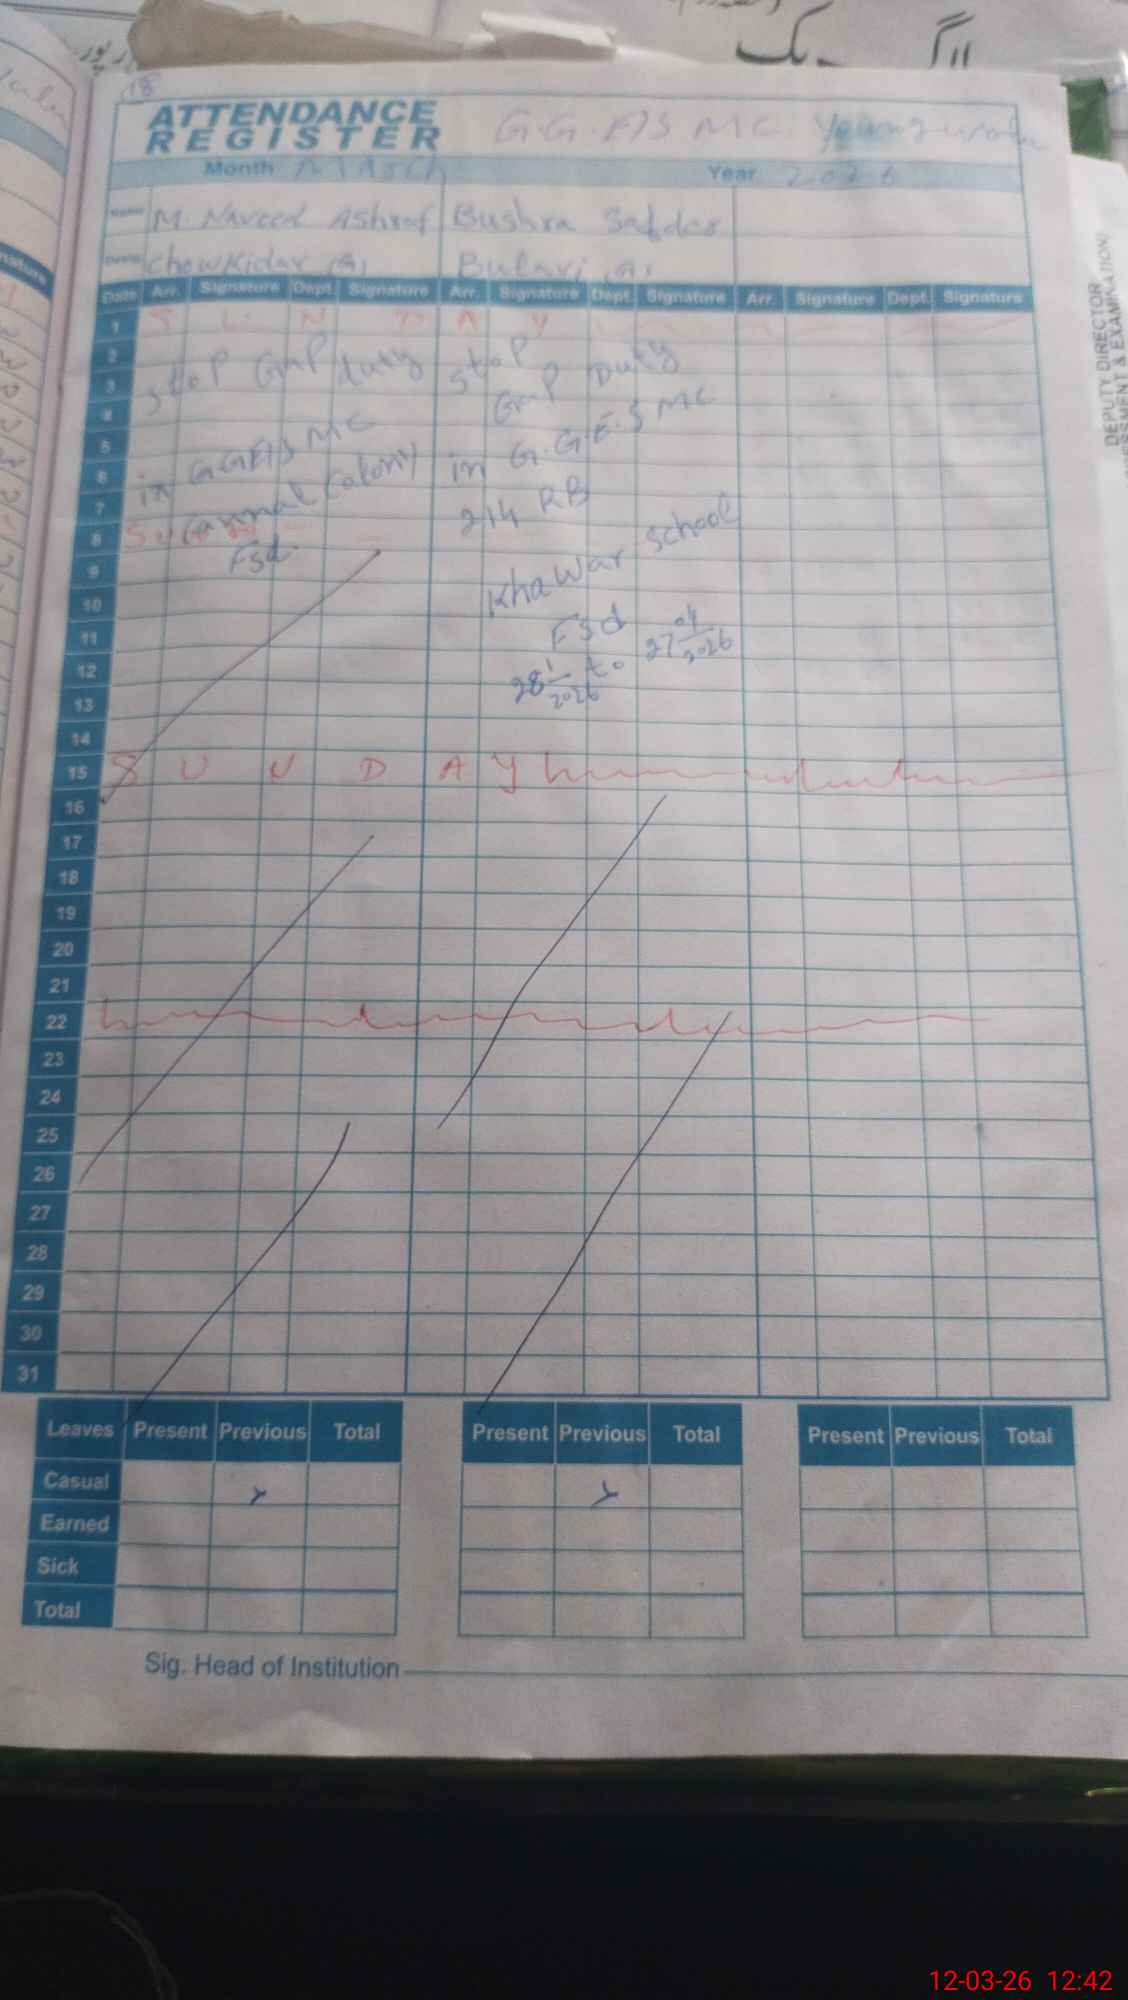 18
ATTENDANCE
REGISTER
G.G.
MC Young
Month March Year 2026
Name M. Naveed Ashraf Bushra Safdar
Chowkidar Bulavi
Date Arr. Signature Dept. Signature Arr. Signature Dept. Signature Arr. Signature Dept. Signature
1 S U N D A Y
2
3
4
5
6
7
8
9
10
11
12
13
14
15 S U N D A Y
16
17
18
19
20
21
22
23
24
25
26
27
28
29
30
31
stop Gap duty
in MC
colony
Fsd.
stop
Gap Duty
in G.G.E.S MC
214 RB
Khawar school
Fsd
28 1 2026 to 27 04 2026
Leaves Present Previous Total Present Previous Total Present Previous Total
Casual
Earned
Sick
Total
Sig. Head of Institution
DEPUTY DIRECTOR
ESSMENT & EXAMINATION)
12-03-26 12:42